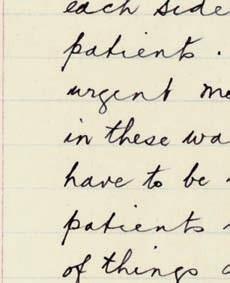 each side
patients.
urgent me
in these wa
have to be
patients
of things